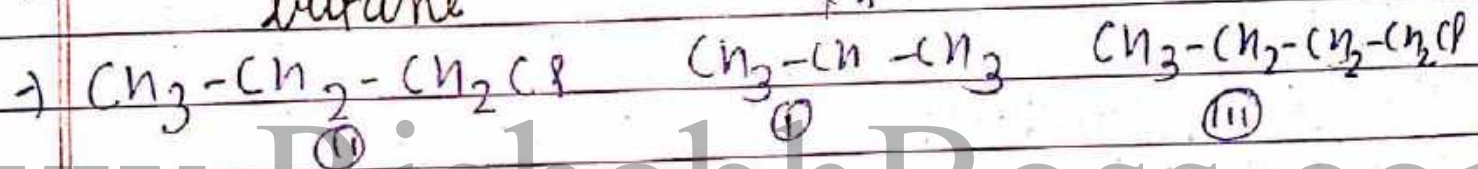 butane
→ CH₃-CH₂-CH₂Cl CH₃-CH-CH₃ CH₃-CH₂-CH₂-CH₂Cl
(II) (I) (III)